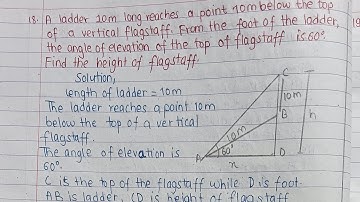 18. A ladder 10m long reaches a point 10m below the top
of a vertical flagstaff. From the foot of the ladder,
the angle of elevation of the top of flagstaff is 60°.
Find the height of flagstaff.
Solution,
length of ladder = 10m
The ladder reaches a point 10m
below the top of a vertical
flagstaff.
The angle of elevation is
60°.
C
10m
B
h
10m
A
60°
x
D
C is the top of the flagstaff while D is foot.
AB is ladder, CD is height of flagstaff
19